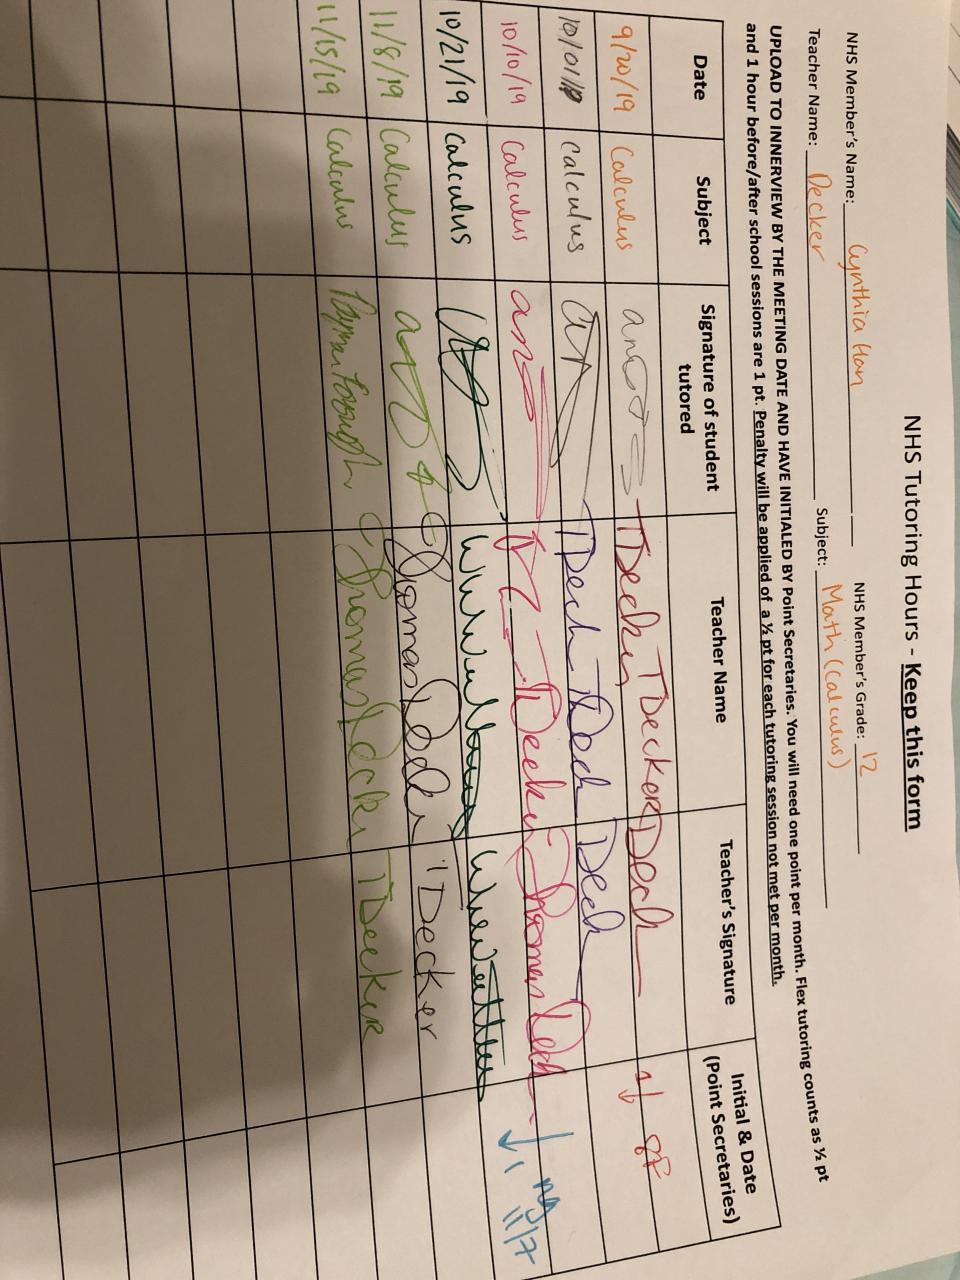 NHS Tutoring Hours - Keep this form
NHS Member's Name: Cynthia Han NHS Member's Grade: 12
Teacher Name: Decker Subject: Math (Calculus)
UPLOAD TO INNERVIEW BY THE MEETING DATE AND HAVE INITIALED BY Point Secretaries. You will need one point per month. Flex tutoring counts as ½ pt
and 1 hour before/after school sessions are 1 pt. Penalty will be applied of a ½ pt for each tutoring session not met per month.
Date Subject Signature of student tutored Teacher Name Teacher's Signature Initial & Date (Point Secretaries)
9/20/19 Calculus TDecker
10/01/19 Calculus
10/10/19 Calculus Decker 11/7
10/21/19 Calculus
11/8/19 Calculus Thomas Decker TDecker
11/15/19 Calculus Thomas Decker TDecker